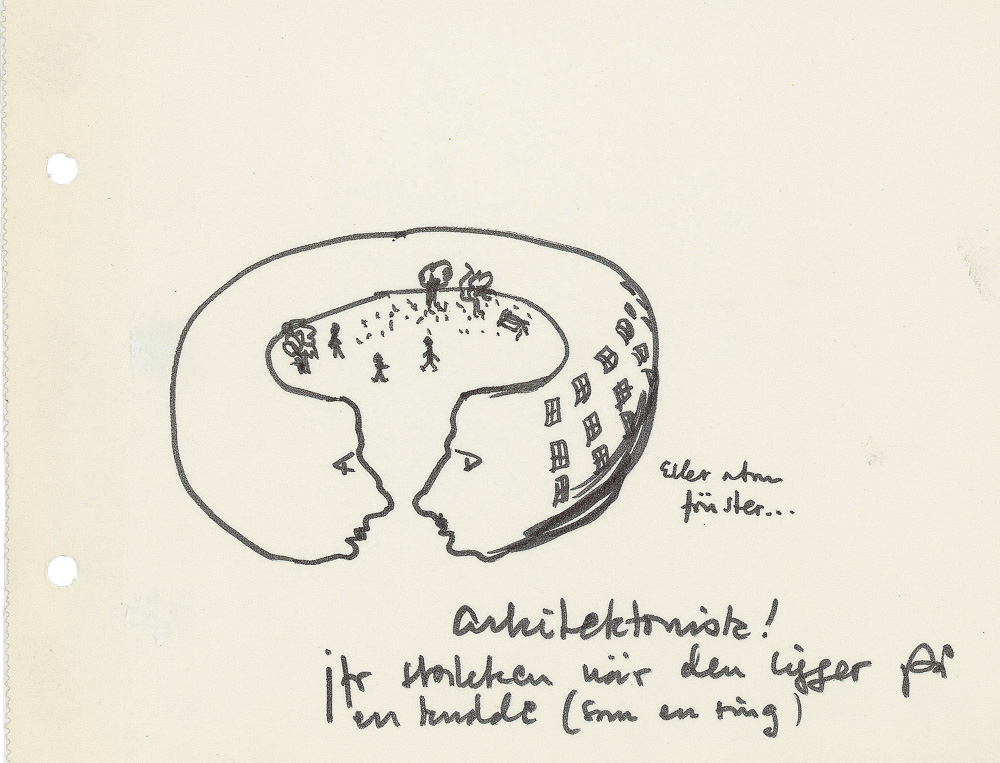 Eller utan
fönster...
arkitektonisk!
Jfr storleken när den ligger på
en kudde (som en ring)